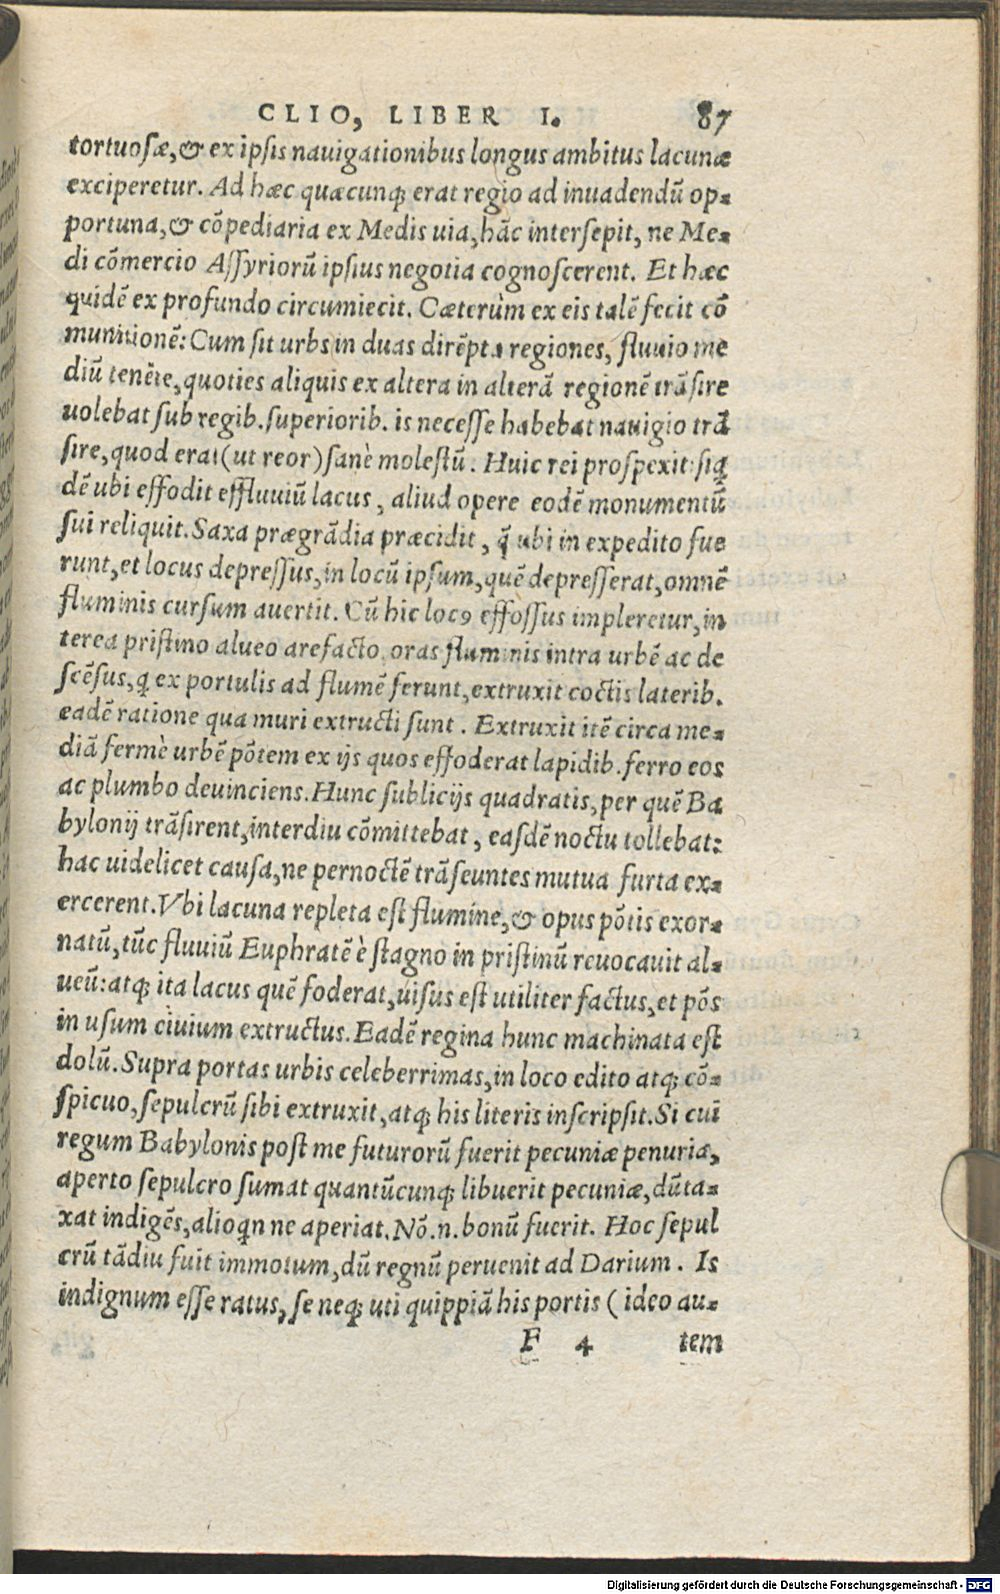 CLIO, LIBER I. 87
tortuosæ, & ex ipsis nauigationibus longus ambitus lacunæ
exciperetur. Ad hæc quæcunq; erat regio ad inuadendū op-
portuna, & cōpediaria ex Medis uia, hāc intersepit, ne Me-
di cōmercio Assyriorū ipsius negotia cognoscerent. Et hæc
quidē ex profundo circumiecit. Cæterùm ex eis talē fecit cō
munitionē: Cum sit urbs in duas dirēpta regiones, fluuio me
diū tenēte, quoties aliquis ex altera in alterā regionē trāsire
uolebat sub regib. superiorib. is necesse habebat nauigio trā
sire, quod erat (ut reor) sanè molestū. Huic rei prospexit: siq;
dē ubi effodit effluuiū lacus, aliud opere eodē monumentū
sui reliquit. Saxa prægrādia præcidit, q̄ ubi in expedito fue
runt, et locus depressus, in locū ipsum, quē depresserat, omnē
fluminis cursum auertit. Cū hic locꝰ effossus impleretur, in
terea pristino alueo arefacto, oras fluminis intra urbē ac de
scēsus, q ex portulis ad flumē ferunt, extruxit coctis laterib.
eadē ratione qua muri extructi sunt. Extruxit itē circa me-
diā fermè urbē pōtem ex ijs quos effoderat lapidib. ferro eos
ac plumbo deuinciens. Hunc sublicijs quadratis, per quē Ba
bylonij trāsirent, interdiu cōmittebat, easdē noctu tollebat:
hac uidelicet causa, ne pernoctē trāseuntes mutua furta ex-
ercerent. Vbi lacuna repleta est flumine, & opus pōtis exor-
natū, tūc fluuiū Euphratē è stagno in pristinū reuocauit al-
ueū: atq; ita lacus quē foderat, uisus est utiliter factus, et pōs
in usum ciuium extructus. Eadē regina hunc machinata est
dolū. Supra portas urbis celeberrimas, in loco edito atq; cō-
spicuo, sepulcrū sibi extruxit, atq; his literis inscripsit. Si cui
regum Babylonis post me futurorū fuerit pecuniæ penuria,
aperto sepulcro sumat quantūcunq; libuerit pecuniæ, dūta-
xat indigēs, alioqn ne aperiat. Nō.n. bonū fuerit. Hoc sepul
crū tādiu fuit immotum, dū regnū peruenit ad Darium. Is
indignum esse ratus, se neq; uti quippiā his portis (ideo au-
F 4 tem
Digitalisierung gefördert durch die Deutsche Forschungsgemeinschaft - DFG